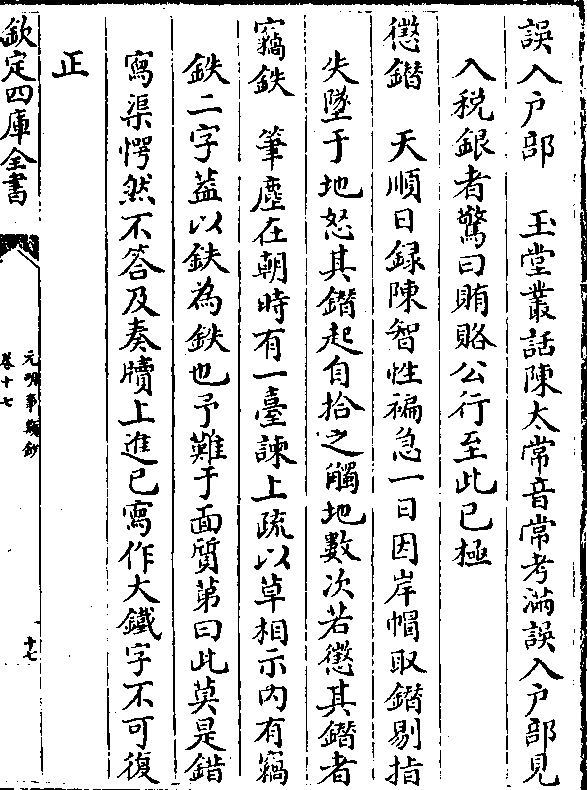 誤入户部　玉堂叢話陳太常音常考滿誤入户部見
入稅銀者驚曰賄賂公行至此已極
懲鐕　天順日録陳智性褊急一日因岸帽取鐕剔指
失墜于地怒其鐕起自拾之觸地數次若懲其鐕者
竊鈇　筆麈在朝時有一臺諫上疏以草相示内有竊
鉄二字葢以鈇為鉄也予難于面質第曰此莫是錯
寫渠愕然不答及奏牘上進已寫作大鐵字不可復
正
欽定四庫全書
元明事類鈔
卷十七
十七